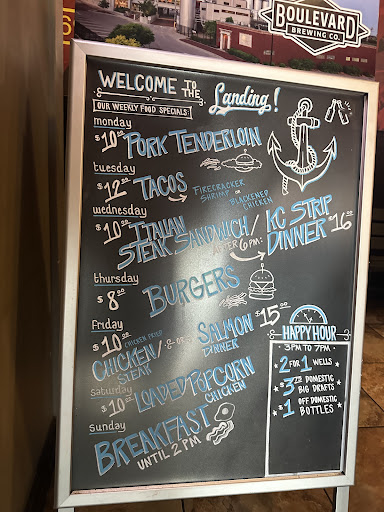 BOULEVARD
BREWING CO.
WELCOME TO THE
Landing!
OUR WEEKLY FOOD SPECIALS:
monday
$10.00 PORK TENDERLOIN
tuesday
$12.00 TACOS
FIRECRACKER
SHRIMP OR
BLACKENED
CHICKEN
wednesday
$10.00 ITALIAN
STEAK SANDWICH /
AFTER 6PM:
KC STRIP $16.00
DINNER
thursday
$8.00 BURGERS
friday
$10.00 CHICKEN FRIED
CHICKEN/
STEAK
-OR-
SALMON $15.00
DINNER
Saturday
$10.00 LOADED POPCORN
CHICKEN
Sunday
BREAKFAST
UNTIL 2 PM
HAPPY HOUR
3PM TO 7PM
2 FOR 1 WELLS
$3.25 DOMESTIC
BIG DRAFTS
$1 OFF DOMESTIC
BOTTLES